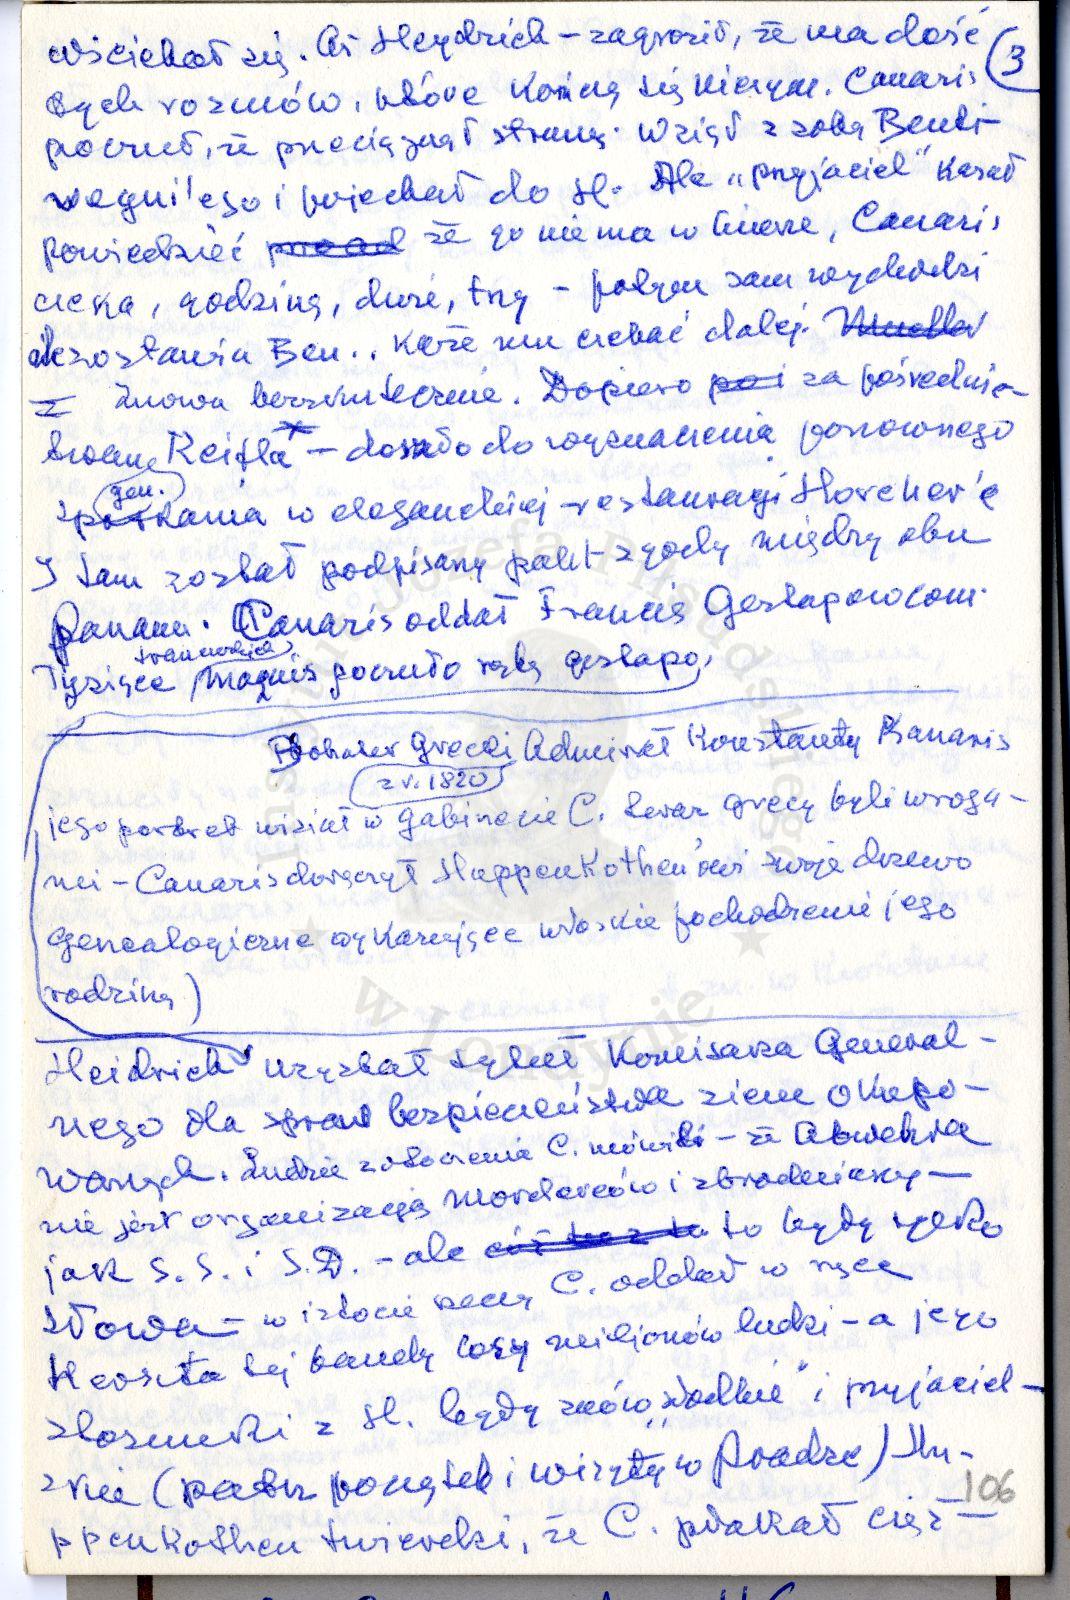 wściekał się. Aż Heydrich – zagroził, że ma dość (3
tych rozmów, które kończą się niczym. Canaris
poczuł, że przeciągnął strunę. Wziął z sobą Benti-
vegni'ego i pojechał do H. Ale „przyjaciel" kazał
powiedzieć że go nie ma w biurze, Canaris
czeka, godzinę, dwie, trzy – potym sam wychodzi
zostawia Ben.. każe mu czekać dalej.
Znowu bezskutecznie. Dopiero za pośrednic-
twem Keitla – doszło do wyznaczenia ponownego
gen.
spotkania w eleganckiej restauracji Horcher'a
I tam został podpisany pakt zgody między obu
panami. Canaris oddał Francję Gestapowcom.
francuskich
Tysiące poczuło rękę gestapo.
Bohater Grecki Admirał Konstanty Kanaris
z r. 1820
jego portret wisiał w gabinecie C. teraz Grecy byli wroga-
mi – Canaris doręczył Huppenkothen'owi swoje drzewo
genealogiczne wykazujące włoskie pochodzenie jego
rodziny)
Heidrich uzyskał tytuł Komisarza General-
nego dla spraw bezpieczeństwa ziem okupo-
wanych. Ludzie z otoczenia C. mówili – że Abwehra
nie jest organizacją morderców i zbrodniarzy –
jak S.S. i S.D. – ale to były tylko
słowa – w istocie rzeczy C. oddał w ręce
Heydricha tej bandy losy milionów ludzi – a jego
stosunki z H. będą znów „słodkie" i przyjaciel-
skie (patrz początek i wizyty w Pradze) Hu-
ppenkothen twierdzi, że C. płakał cięż-
106
Instytut Józefa Piłsudskiego
w Londynie